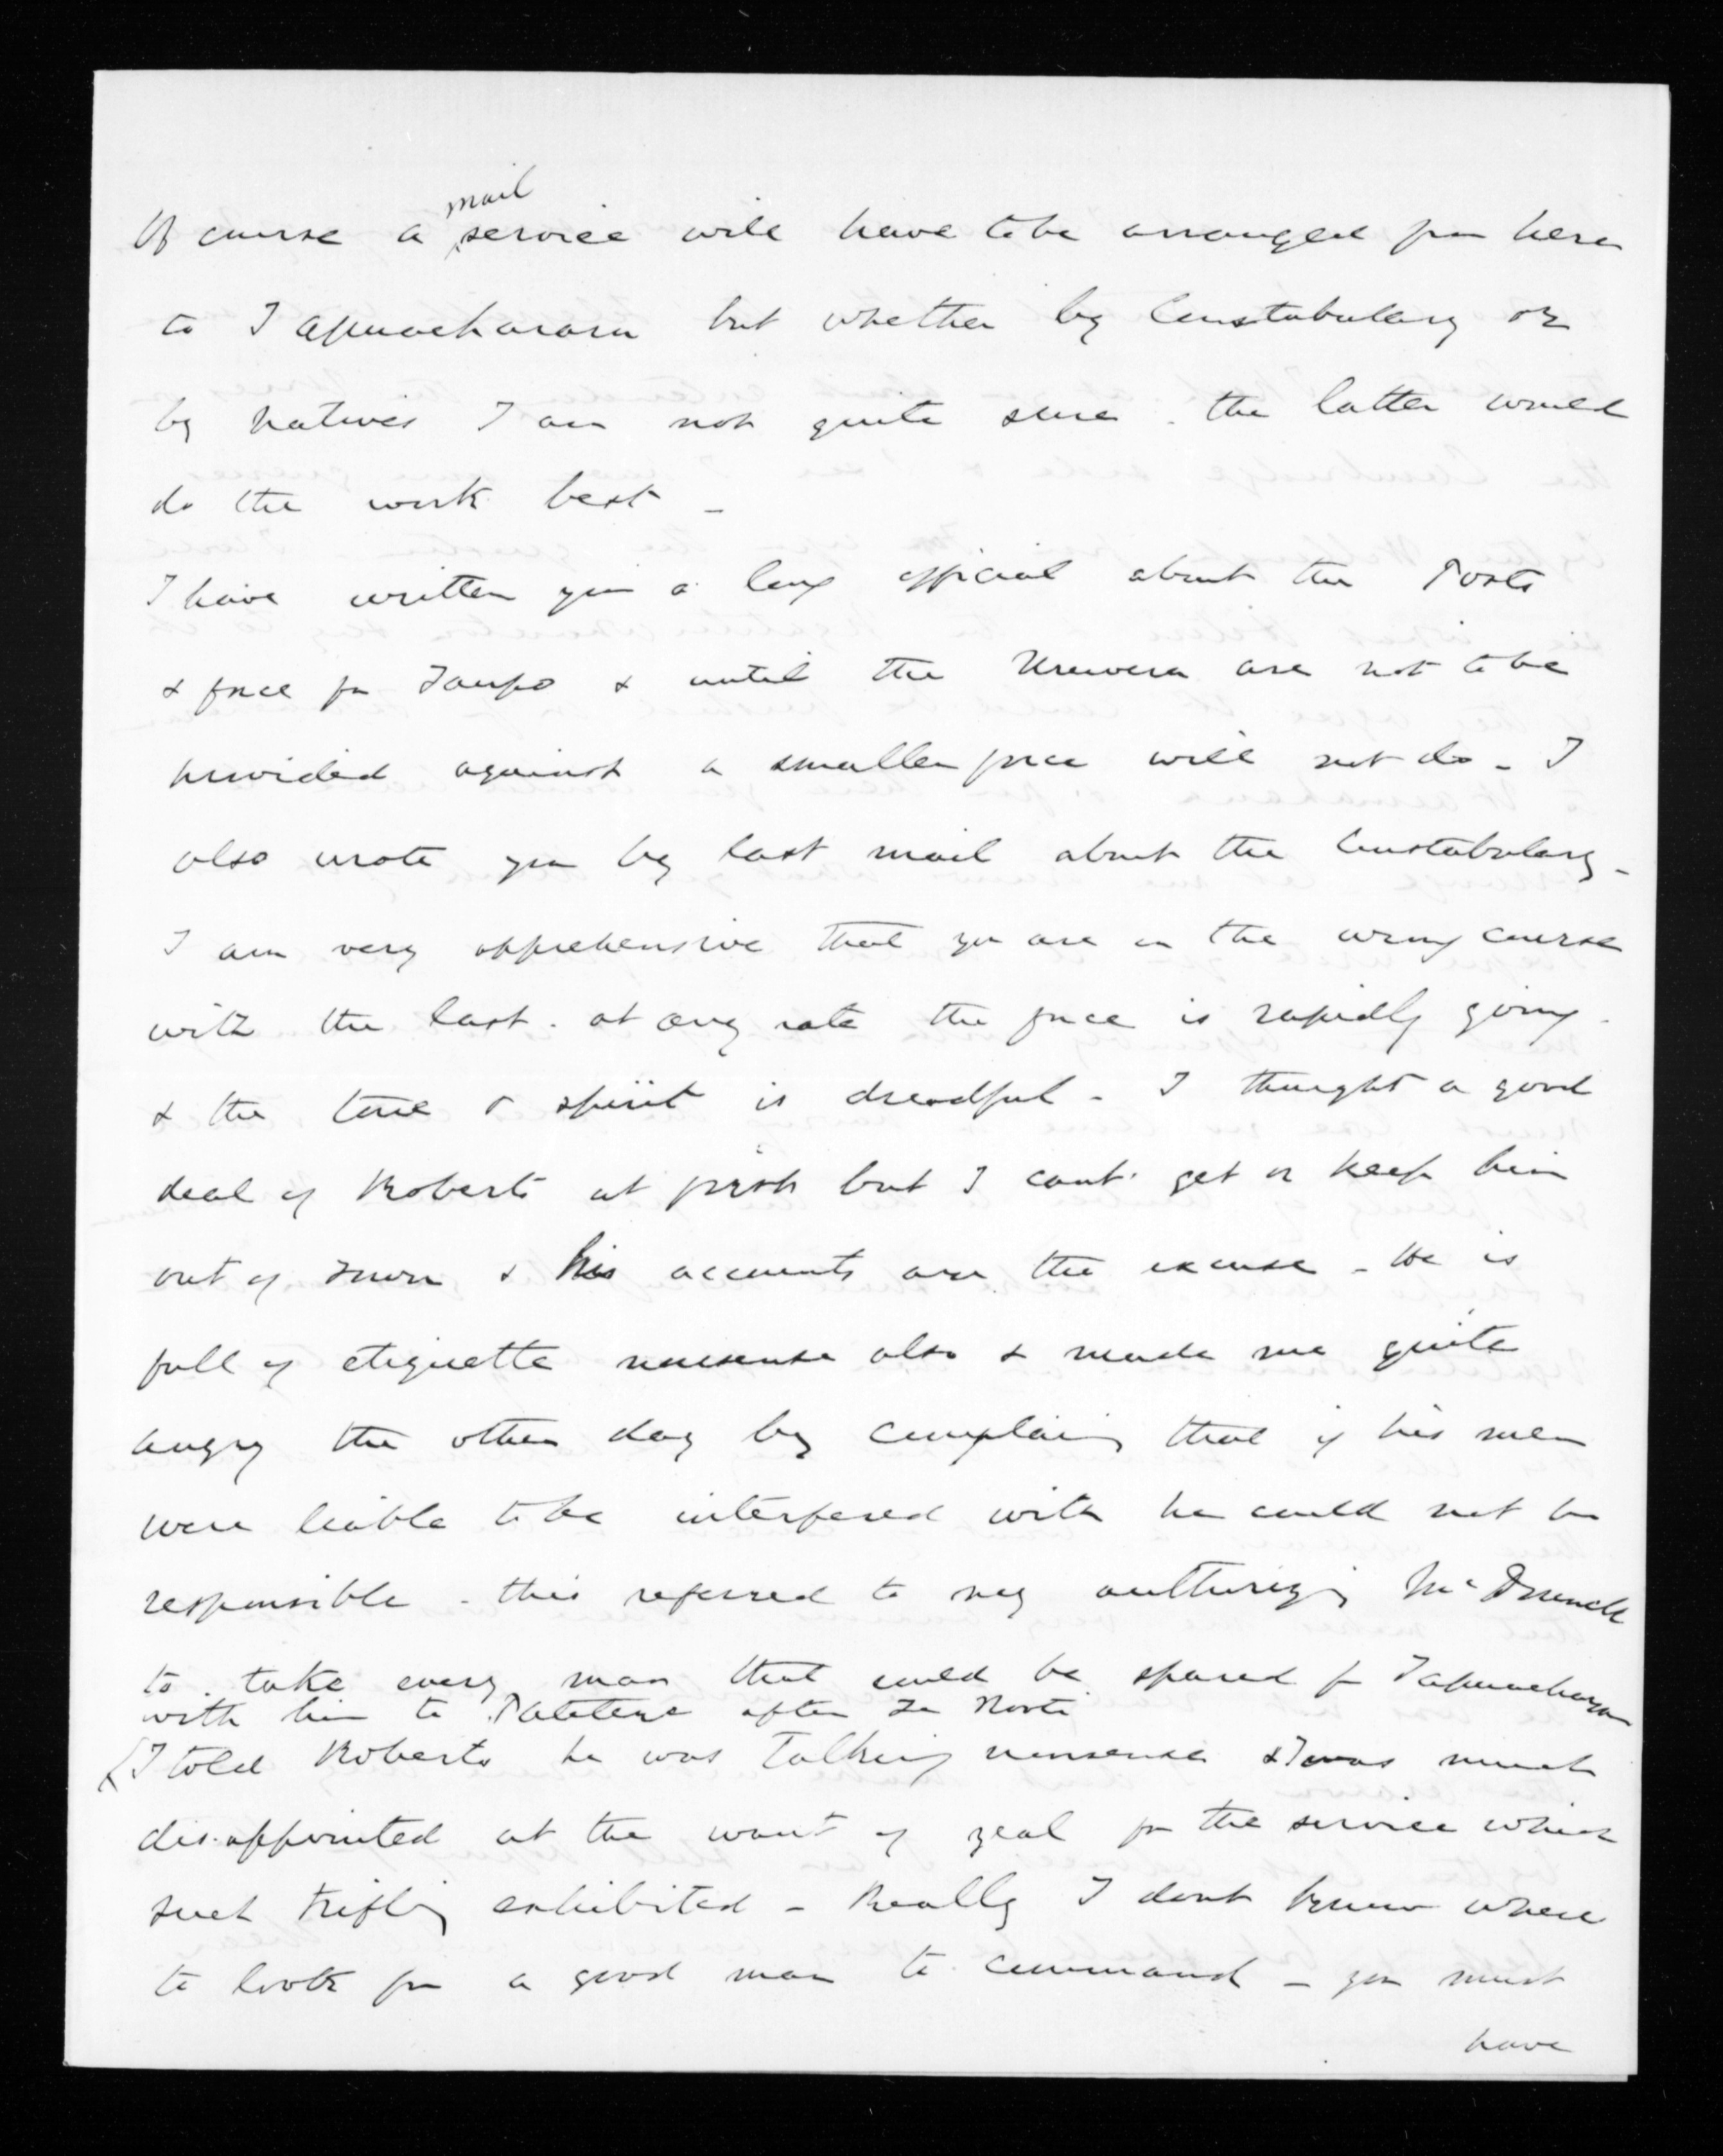 Of course a mail service will have to be arranged from here
to Tapuaeharuru but whether by Constabulary or
by Natives I am not quite sure. the latter would
do the work best -
I have written you a long official about the Posts
& force for Taupo & until the Urewera are not to be
provided against a smaller force will not do - I
also wrote you by last mail about the Constabulary -
I am very apprehensive that you are on the wrong course
with the last. at any rate the force is rapidly going.
& the tone & spirit is dreadful - I thought a good
deal of Roberts at first but I cant get or keep him
out of Town & his accounts are the excuse - He is
full of etiquette nonsense also & made me quite
angry the other day by complaing that if his men
were liable to be interfered with he could not be
responsible - this referred to my authorizing McDonnell
to take every man that could be spared fr Tapuaeharuru
with him to Patetere after Te Kooti
(I told Roberts he was talking nonsense & I was much
disappointed at the want of zeal for the service which
such trifling exhibited - Really I dont know where
to look for a good man to command - you must
have